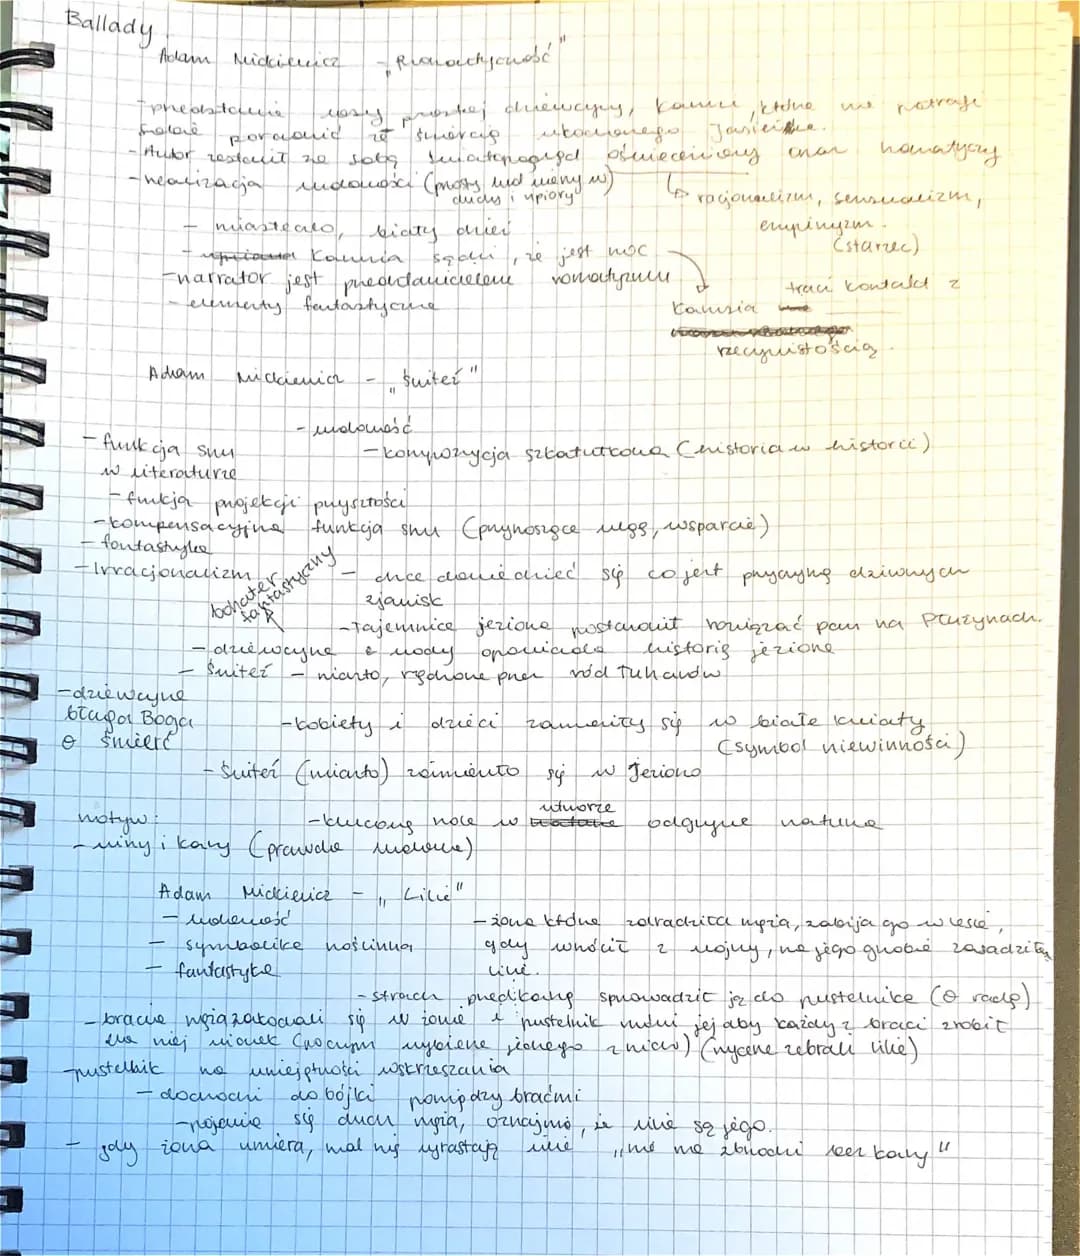 Ballady
Adam Mickiewicz - „Romantyczność"
- przedstawia losy prostej dziewczyny, Karusi, która nie potrafi
sobie poradzić ze śmiercią ukochanego Jasieńka.
- Autor zestawił ze sobą światopogląd oświeceniowy oraz romatyczny
- realizacja ludowości (prosty lud wierzy w)
duchy i upiory
↳ racjonalizm, sensualizm,
empiryzm.
(starzec)
- miasteczko, biały dzień
- Karusia sądzi, że jest noc
- narrator jest przedstawicielem romatyzmu
- elementy fantastyczne
Karusia traci kontakt z
rzeczywistością.
Adam Mickiewicz - „Świteź"
- ludowość
- funkcja snu
w literaturze
- kompozycja szkatułkowa (historia w historii)
- funkcja projekcji przyszłości
- kompensacyjna funkcja snu (przynosząca ulgę, wsparcie)
- fantastyka
- Irracjonalizm
bohater
fantastyczny
- chce dowiedzieć się co jest przyczyną dziwnych
zjawisk
- Tajemnice jeziora postanowił rozwiązać pan na Płużynach.
- dziewczyna z wody opowiada historię jeziora
- Świteź - miasto, rządzone przez ród Tuhanów
- dziewczyna
błaga Boga
o śmierć
- kobiety i dzieci zamieniły się w białe kwiaty
(symbol niewinności)
- Świteź (miasto) zamieniło się w Jezioro
motyw:
- kluczową rolę w utworze odgrywa natura
- winy i kary (prawda ludowa)
Adam Mickiewicz - „Lilie"
- ludowość
- symbolika roślinna
- fantastyka
- żona która zdradziła męża, zabija go w lesie,
gdy wrócił z wojny, na jego grobie zasadziła
lilie.
- strach przed karą sprowadzic ją do pustelnika (o radę)
- bracia męża zakochali się w żonie i pustelnik mówi jej aby każdy z braci zrobił
dla niej wianek (poczym wybiera jednego z nich) (rycerze zebrali lilie)
- pustelnik ma umiejętności wskrzeszania
- dochodzi do bójki pomiędzy braćmi
- pojawia się duch męża, oznajmia, że lilie są jego.
- gdy żona umiera, nad nią wyrastają lilie „nie ma zbrodni bez kary"